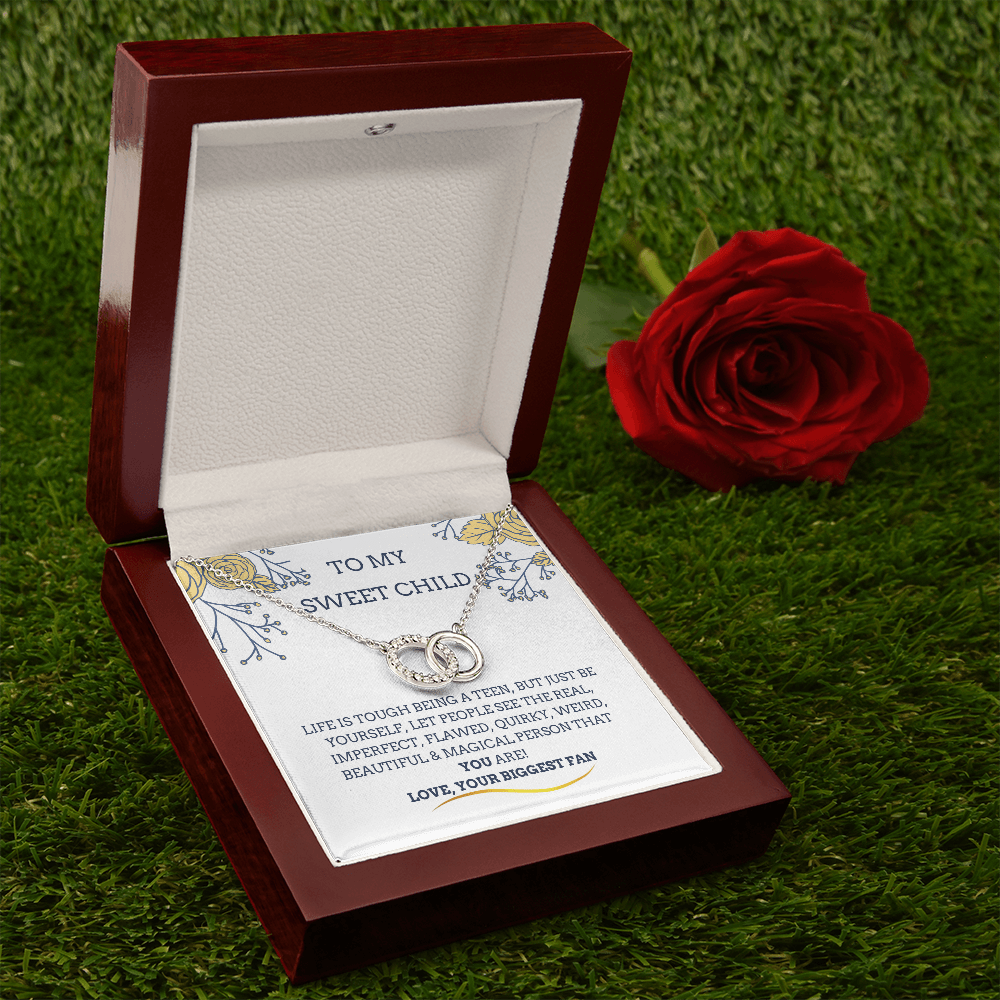 TO MY
SWEET CHILD
LIFE IS TOUGH BEING A TEEN, BUT JUST BE
YOURSELF, LET PEOPLE SEE THE REAL,
IMPERFECT, FLAWED, QUIRKY, WEIRD,
BEAUTIFUL & MAGICAL PERSON THAT
YOU ARE!
LOVE, YOUR BIGGEST FAN